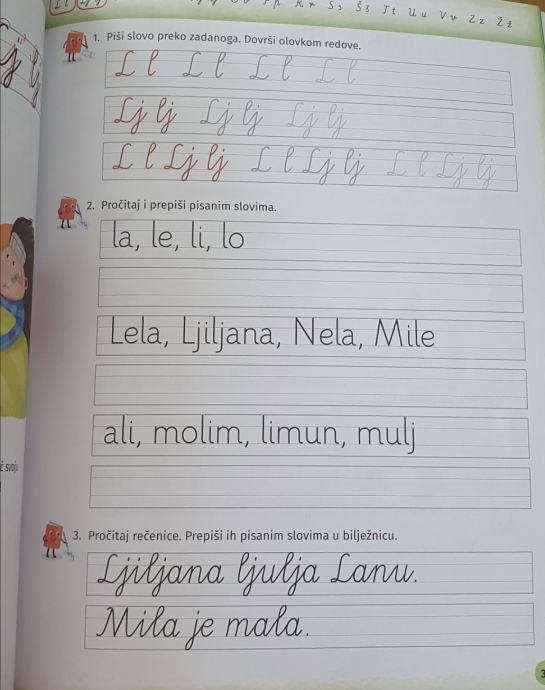 S s Š š T t U u V v Z z Ž ž
1. Piši slovo preko zadanoga. Dovrši olovkom redove.
L l L l L l L l
Lj lj Lj lj Lj lj
L l Lj lj L l Lj lj L l Lj lj
2. Pročitaj i prepiši pisanim slovima.
la, le, li, lo
Lela, Ljiljana, Nela, Mile
ali, molim, limun, mulj
3. Pročitaj rečenice. Prepiši ih pisanim slovima u bilježnicu.
Ljiljana ljulja Lanu.
Mila je mala.